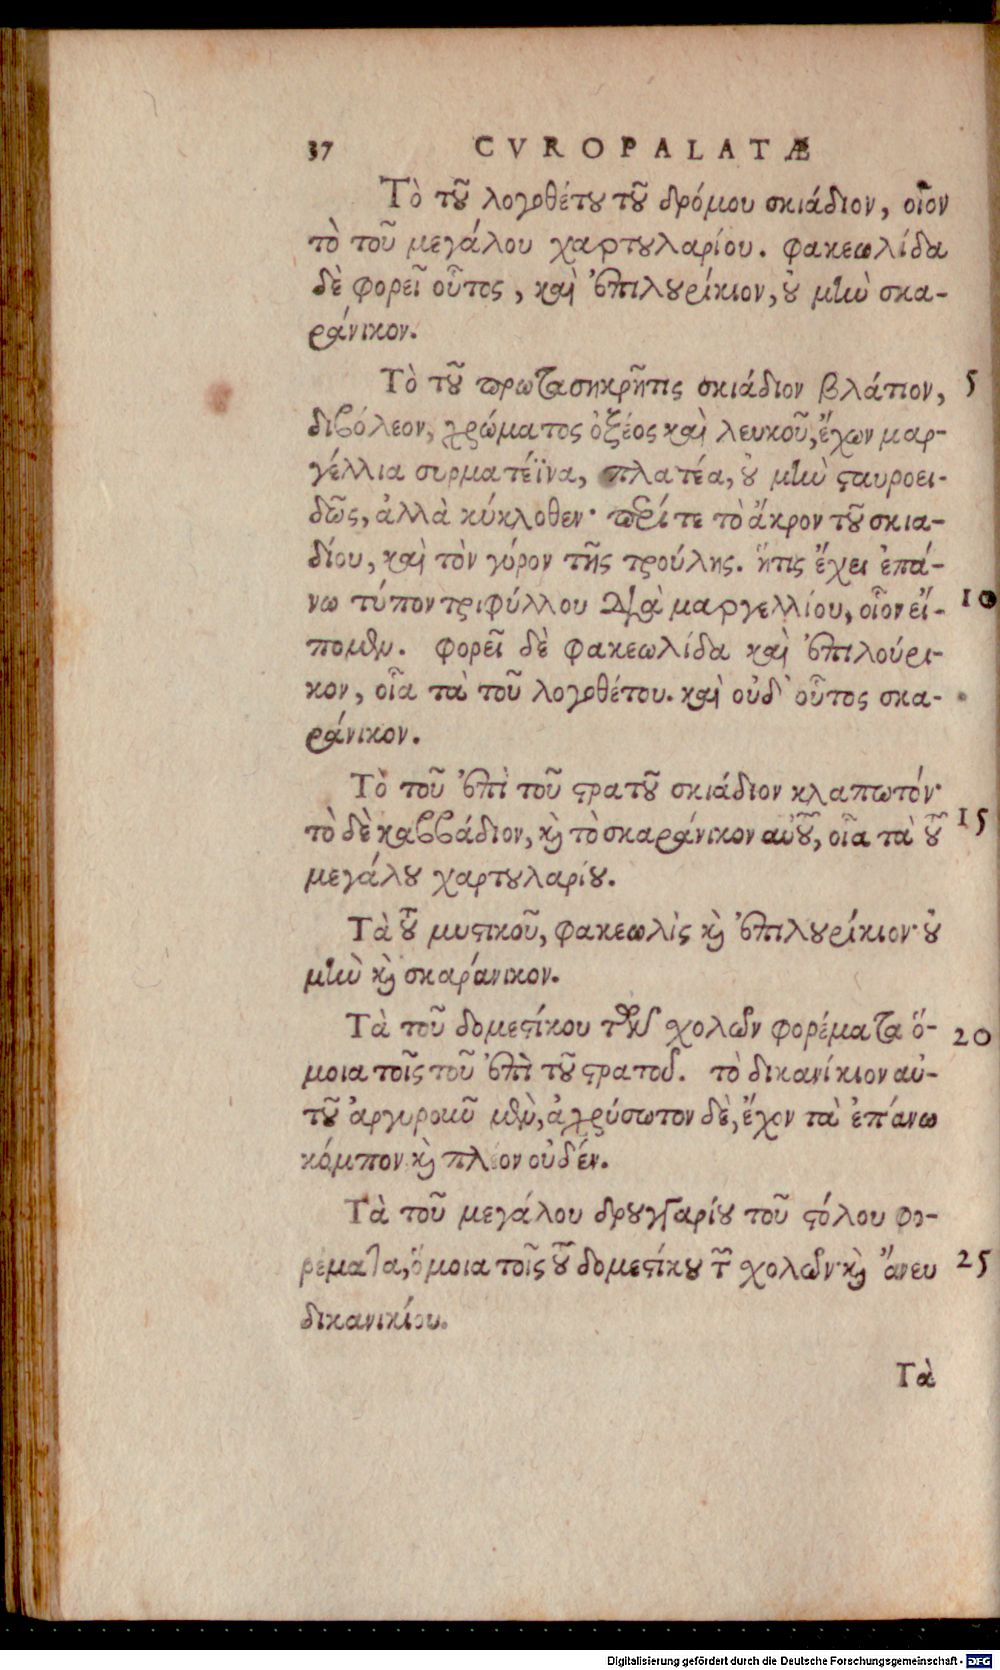 37 CVROPALATÆ
Τὸ τȣ͂ λογοθέτȣ τȣ͂ δρόμου σκιάδιον, οἷον
τὸ τοῦ μεγάλου χαρτȣλαρίου. φακεωλίδα
δὲ φορεῖ οὗτος, καὶ ἐπιλȣρίκιον, ȣ̓ μὴν σκα-
ράνικον.
Τὸ τȣ͂ πρωτασηκρῆτις σκιάδιον βλάτιον, 5
διβόλεον, χρώματος ὀξέος καὶ λευκοῦ, ἔχων μαρ-
γέλλια συρματέϊνα, πλατέα, ȣ̓ μὴν ϛαυροει-
δῶς, ἀλλὰ κύκλοθεν· περί τε τὸ ἄκρον τȣ͂ σκια-
δίου, καὶ τὸν γύρον τῆς τρούλης. ἥτις ἔχει ἐπά-
νω τύπον τριφύλλου διὰ μαργελλίου, οἷον εἴ- 10
πομεν. φορεῖ δὲ φακεωλίδα καὶ ἐπιλούρι-
κον, οἷα τὰ τοῦ λογοθέτου. καὶ οὐδ' οὗτος σκα-
ράνικον.
Τὸ τοῦ ἐπὶ τοῦ ϛρατȣ͂ σκιάδιον κλαπωτόν·
τὸ δὲ καββάδιον, ϗ τὸ σκαράνικον αὐτȣ͂, οἷα τὰ τȣ͂ 15
μεγάλȣ χαρτȣλαρίȣ.
Τὰ τȣ͂ μυϛικοῦ, φακεωλὶς ϗ ἐπιλȣρίκιον· ȣ̓
μὴν ϗ σκαράνικον.
Τὰ τοῦ δομεϛίκου τῶν χολῶν φορέματα ὅ- 20
μοια τοῖς τοῦ ἐπὶ τȣ͂ ϛρατοῦ. τὸ δικανίκιον αὐ-
τȣ͂ ἀργυροκȣ͂ μὲν, ἀχρύσωτον δὲ, ἔχον τὰ ἐπάνω
κόμπον ϗ πλέον οὐδέν.
Τὰ τοῦ μεγάλου δρȣγγαρίȣ τοῦ ϛόλου φο-
ρέματα, ὅμοια τοῖς τȣ͂ δομεϛίκȣ τῶν χολῶν· ϗ ἄνευ 25
δικανικίου.
Τὰ
Digitalisierung gefördert durch die Deutsche Forschungsgemeinschaft - DFG